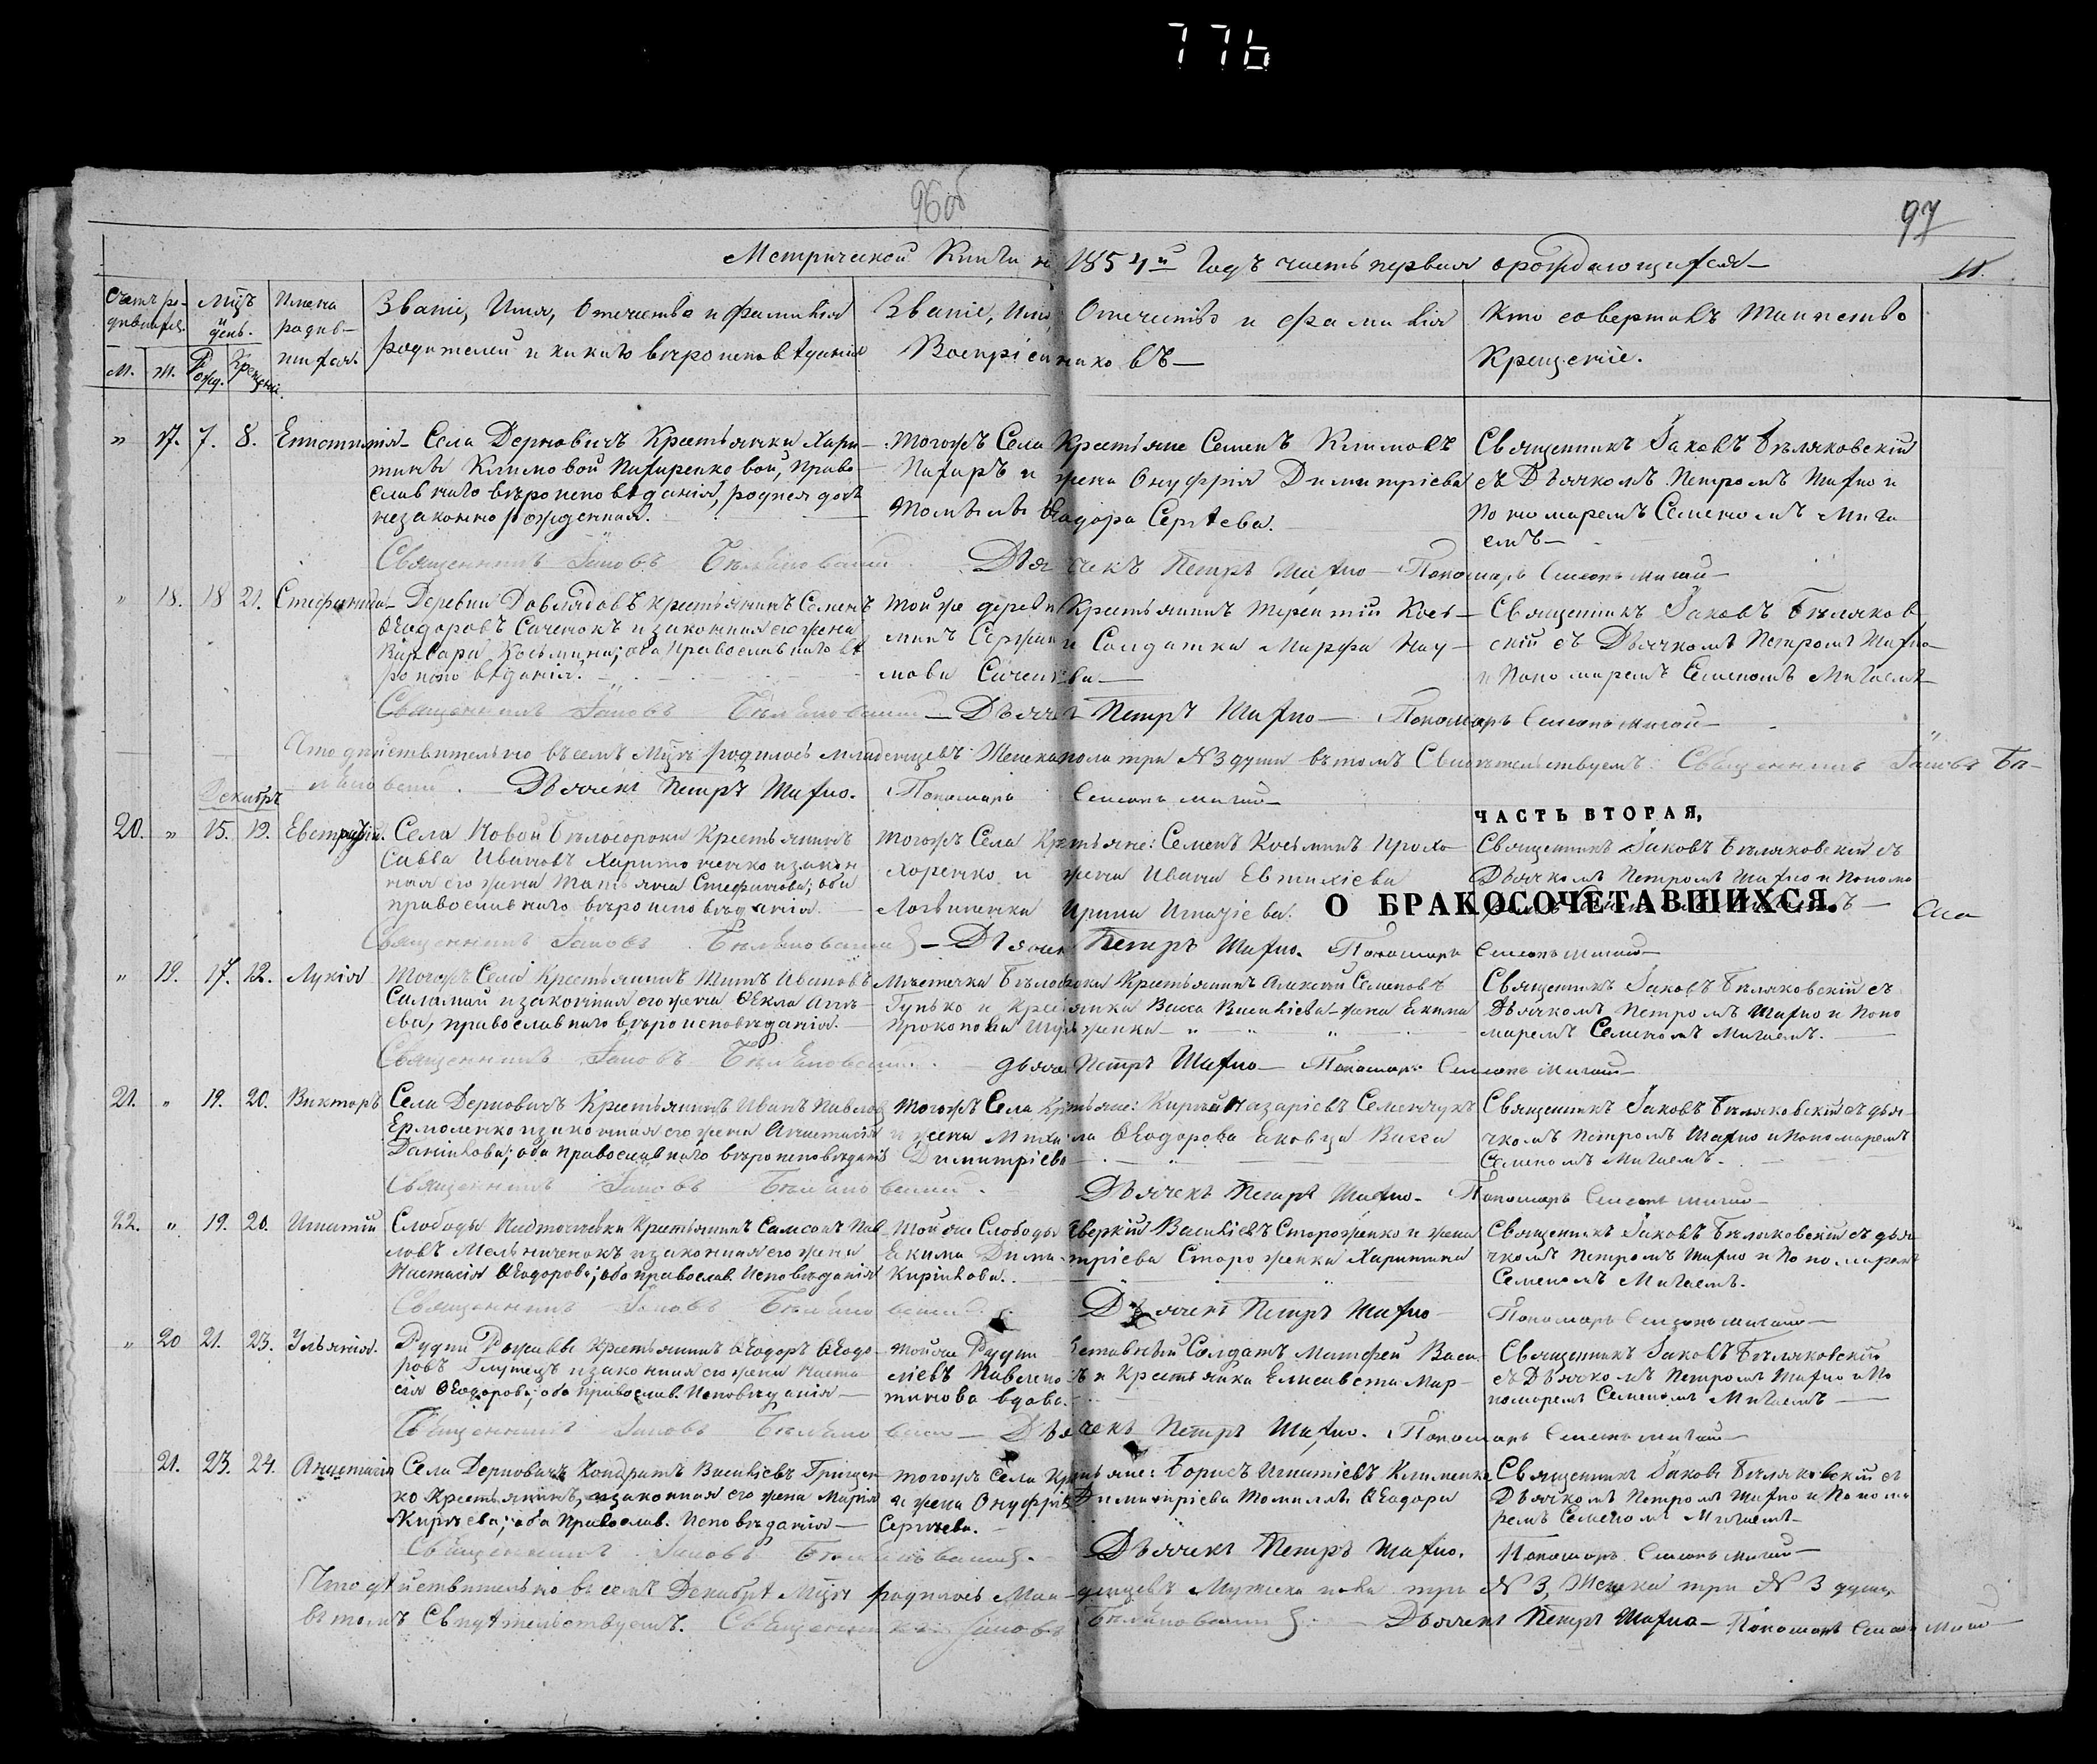 776
96об
97
Метрической Книги на 1854й Годъ часть первая о рождающихся
11.
Счетъ родившихся.
Мцъ и день.
Имена родившихся.
Званіе, Имя, Отечество и фамилія
родителей и какого вѣроисповѣданія
Званіе, Имя, Отечество и фамилія
Воспріемниковъ
Кто совершалъ Таинство
Крещеніе.
М. Ж. Рожд. Крещеніе.
" 17. 7. 8.
Села Дерновичъ Крестьянка Хари-
тина Климовой Пахиренковой, право-
славнаго вѣроисповѣданія, родися дочь
незаконнорожденная.
Тогожъ Села Крестьяне Семенъ Климовъ
Пахиръ и жена Онуфрія Димитріева
Ѳеодора Сергѣева.
Священникъ Іаковъ Бѣляковскій
съ Дьячкомъ Петромъ Шахно и
Пономаремъ Семеномъ Мига-
емъ
Священникъ Іаковъ Бѣляковскій Дьячекъ Петръ Шахно Пономарь Семенъ Мигай
" 18. 18 21. Стефанида
Деревни Довлядовъ Крестьянинъ Семенъ
Ѳеодоровъ Саченокъ и законная его жена
Варвара Косьмина; оба православнаго вѣ-
роисповѣданія.
Тойже деревни Крестьянинъ Терентій Кось-
минъ и Солдатка Марфа Нау-
мова
Священникъ Іаковъ Бѣляков-
скій съ Дьячкомъ Петромъ Шахно
и Пономаремъ Семеномъ Мигаемъ
Священникъ Іаковъ Бѣляковскій Дьячекъ Петръ Шахно Пономарь Семенъ Мигай
Что дѣйствительно въ семъ Мцѣ родилось младенцевъ Женска пола три №3 души въ томъ Свидѣтельствуемъ: Священникъ Іаковъ Бѣ-
ляковскій. Дьячекъ Петръ Шахно. Пономарь Семенъ Мигай
Декабрь
ЧАСТЬ ВТОРАЯ,
О БРАКОСОЧЕТАВШИХСЯ.
20. " 15. 19. Евстратій.
Села Новой Бѣлосороки Крестьянинъ
Савва Ивановъ Харитоненко и закон-
ная его жена Татьяна Стефанова; оба
православнаго вѣроисповѣданія.
Тогожъ Села Крестьяне: Семенъ Косьминъ Прохо-
хоренко и жена Ивана Евтихіева
Логвиненка Ирина Игнатіева.
Священникъ Іаковъ Бѣляковскій съ
Дьячкомъ Петромъ Шахно и Понома-
Священникъ Іаковъ Бѣляковскій Дьячекъ Петръ Шахно. Пономарь Семенъ Мигай
" 19. 17. Лукія
Тогожъ Села Крестьянинъ Титъ Ивановъ
Саламай и законная его жена Ѳекла
православнаго вѣроисповѣданія.
Мѣстечка Крестьянинъ Алексѣй Семеновъ
Гунько и Васса Василіева жена Екима
Прокопова
Священникъ Іаковъ Бѣляковскій съ
Дьячкомъ Петромъ Шахно и Поно-
маремъ Семеномъ Мигаемъ.
Священникъ Іаковъ Бѣляковскій. Дьячекъ Петръ Шахно Пономарь Семенъ Мигай
21. " 19. 20. Викторъ
Села Дерновичъ Крестьянинъ Иванъ Павловъ
Ермоленко и законная его жена Анастасія
Данілова; оба православнаго вѣроисповѣданія
Тогожъ Села Крестьяне: Назаріевъ Семенчукъ
и жена Михаила Ѳеодорова Васса
Димитріева
Священникъ Іаковъ Бѣляковскій съ дья-
чкомъ Петромъ Шахно и Пономаремъ
Семеномъ Мигаемъ.
Священникъ Іаковъ Бѣляковскій. Дьячекъ Петръ Шахно. Пономарь Семенъ Мигай
22. " 19. 20. Игнатій
Слободы Крестьянинъ Самсонъ Пав-
ловъ Мельниченокъ и законная его жена
Настасія Ѳеодорова; оба православ. Исповѣданія
Тойже Слободы Аверкій Василіевъ Стороженко и жена
Екима Димитріева Стороженка Харитина
Кирілова.
Священникъ Іаковъ Бѣляковскій съ дья-
чкомъ Петромъ Шахно и Пономаремъ
Семеномъ Мигаемъ.
Священникъ Іаковъ Бѣляковскій. Дьячекъ Петръ Шахно Пономарь Семенъ Мигай
" 20 21. 23. Ульянія.
Рудни Рожавы Крестьянинъ Ѳеодоръ Ѳеодо-
ровъ и законная его жена Наста-
сія Ѳеодорова; оба православ. Исповѣданія
Тойже Рудни Отставный Солдатъ Матфей Васи-
ліевъ и Крестьянка Елисавета Мар-
тинова вдова.
Священникъ Іаковъ Бѣляковскій
съ Дьячкомъ Петромъ Шахно и По-
номаремъ Семеномъ Мигаемъ
Священникъ Іаковъ Бѣляковскій Дьячекъ Петръ Шахно. Пономарь Семенъ Мигай
21. 23. 24. Анастасія
Села Дерновичъ Кондратъ Василіевъ Грищен-
ко Крестьянинъ, и законная его жена Марія
Кирѣева; оба Православ. Исповѣданія
Тогожъ Села Крестьяне: Борисъ Игнатіевъ Клименко
и жена Онуфрія Димитріева Ѳеодора
Сергѣева.
Священникъ Іаковъ Бѣляковскій съ
Дьячкомъ Петромъ Шахно и Понома-
ремъ Семеномъ Мигаемъ
Священникъ Іаковъ Бѣляковскій. Дьячекъ Петръ Шахно. Пономарь Семенъ Мигай
Что дѣйствительно въ семъ Декабрѣ Мцѣ родилось Мла-денцевъ Мужска пола три №3, Женска три №3 души,
въ томъ Свидѣтельствуемъ. Священникъ Іаковъ Бѣляковскій. Дьячекъ Петръ Шахно Пономарь Семенъ Мигай